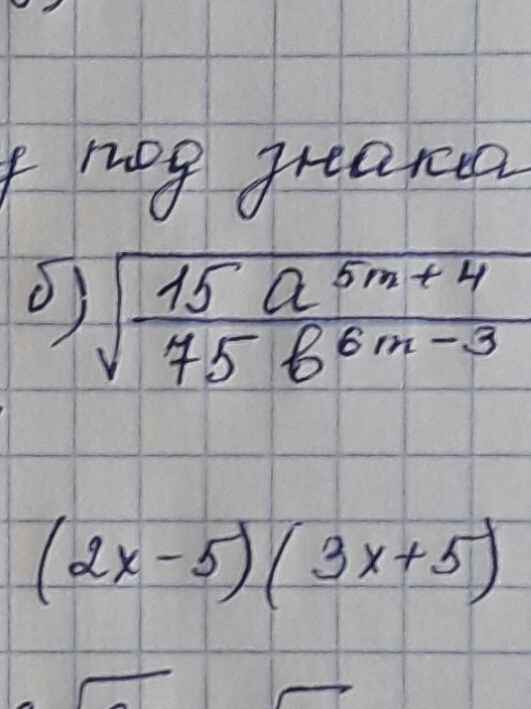 под знака
б) √(15 a^(5m+4) / 75 b^(6m-3))
(2x-5)(3x+5)